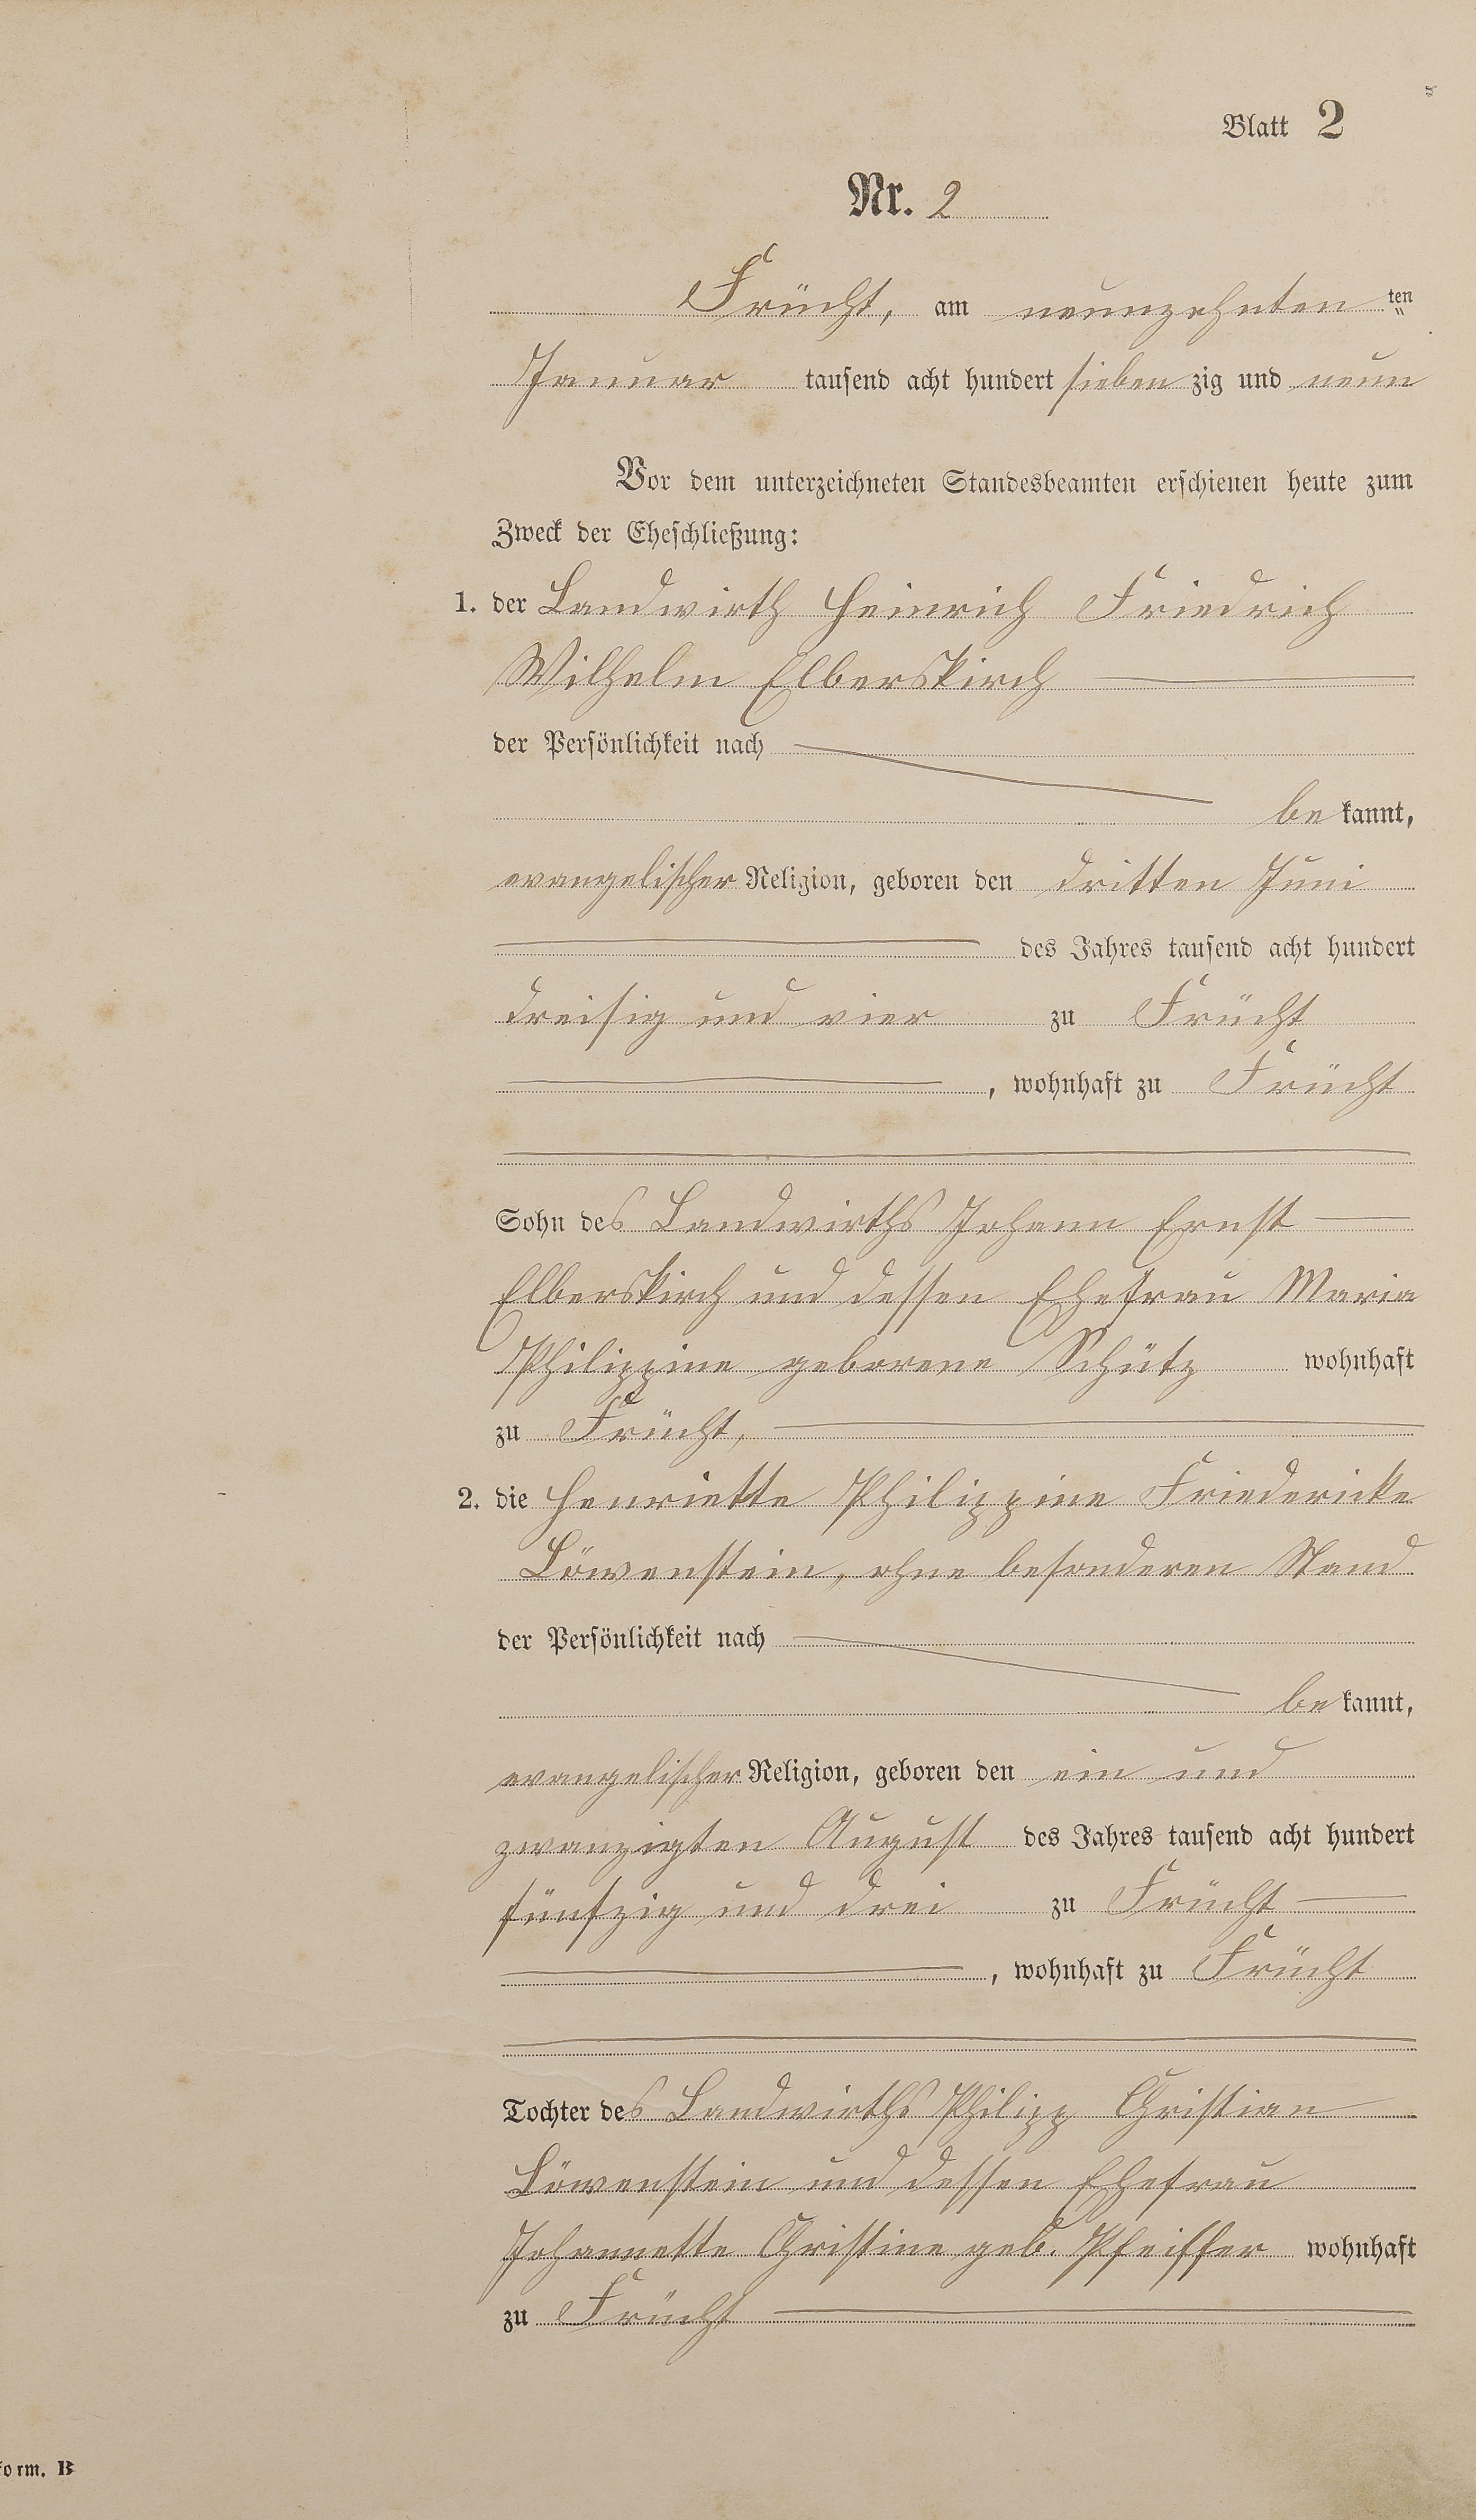 Blatt 2
Nr. 2
Frücht, am neunzehnten ten
Januar tausend acht hundert sieben zig und neun
Vor dem unterzeichneten Standesbeamten erschienen heute zum
Zweck der Eheschließung:
1. der Landwirth Heinrich Friedrich
Wilhelm Elberskirch
der Persönlichkeit nach
be kannt,
evangelischer Religion, geboren den dritten Juni
des Jahres tausend acht hundert
dreisig und vier zu Frücht
, wohnhaft zu Frücht
Sohn des Landwirths Johann Ernst
Elberskirch und dessen Ehefrau Maria
Philippine geborene Schütz wohnhaft
zu Frücht,
2. die Henriette Philippine Friedericke
Löwenstein, ohne besonderen Stand
der Persönlichkeit nach
be kannt,
evangelischer Religion, geboren den ein und
zwanzigten August des Jahres tausend acht hundert
fünfzig und drei zu Frücht
, wohnhaft zu Frücht
Tochter des Landwirths Philipp Christian
Löwenstein und dessen Ehefrau
Johannette Christine geb. Pfeiffer wohnhaft
zu Frücht
Form. B